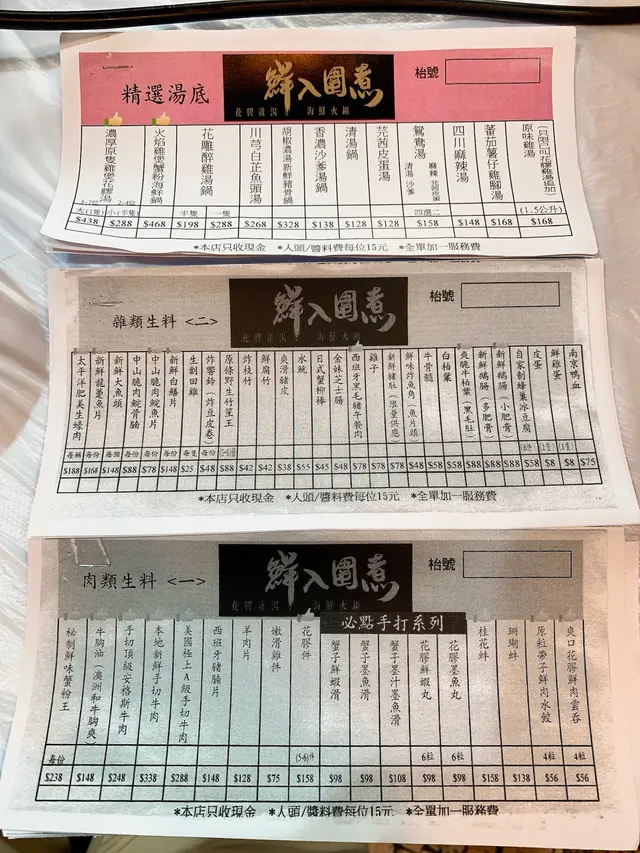 精選湯底
鮮入圍煮
花膠雞湯 海鮮火鍋
枱號
濃厚原隻雞煲花膠湯 5-7位 2-4位 大(1隻) 小(半隻) $438 $288
火焰雞煲蟹粉海鮮鍋 $468
花雕醉雞湯鍋 半隻 一隻 $198 $288
川芎白芷魚頭湯 $268
胡椒濃湯新鮮豬骨鍋 $328
香濃沙爹湯鍋 $138
清湯鍋 $128
芫茜皮蛋湯 $128
鴛鴦湯 清湯 沙爹 麻辣 芫茜皮蛋 四選二 $158
四川麻辣湯 $148
蕃茄薯仔雞腳湯 $168
原味雞湯 (只限已叫花膠雞湯追加) (1.5公升) $168
*本店只收現金 *人頭/醬料費每位15元 *全單加一服務費
雜類生料 <二>
鮮入圍煮
花膠雞湯 海鮮火鍋
枱號
太平洋肥美生蠔肉 每桶 $188
新鮮龍躉魚片 每份 $168
新鮮大魚頭 每個 $148
中山脆肉鯇骨腩 每份 $88
中山脆肉鯇魚片 每份 $78
新鮮白鱔片 每份 $148
生劏田雞 每隻 $25
炸響鈴 (炸豆皮卷) 每份 $48
原條野生竹笙王 $88
炸枝竹 $42
鮮腐竹 $42
爽滑豬皮 $38
水魷 $55
日式蟹柳棒 $45
金妹芝士腸 $48
西班牙黑毛豬午餐肉 $78
雞子 $78
新鮮豬肚 (限量供應) $78
鮮味炸魚角 (魚片頭) $48
牛骨髓 $58
白柏葉 $58
爽脆牛柏葉 (黑毛肚) $88
新鮮鵝腸 (多肥膏) $88
新鮮鵝腸 (小肥膏) $88
自家制蜂巢冰豆腐 (8件) $58
皮蛋 (1隻) $8
鮮雞蛋 (1隻) $8
南京鴨血 $75
*本店只收現金 *人頭/醬料費每位15元 *全單加一服務費
肉類生料 <一>
鮮入圍煮
花膠雞湯 海鮮火鍋
枱號
必點手打系列
秘制鮮味蟹粉王 每份 $238
牛胸油 (澳洲和牛胸爽) $148
手切頂級安格斯牛肉 $248
本地新鮮手切牛肉 $338
美國極上A級手切牛肉 $288
西班牙豬腩片 $148
羊肉片 $128
嫩滑雞件 $75
花膠件 (5-6)件 $158
蟹子鮮蝦滑 $98
蟹子墨魚滑 $98
蟹子墨汁墨魚滑 $108
花膠鮮蝦丸 6粒 $98
花膠墨魚丸 6粒 $98
桂花蚌 $158
珊瑚蚌 $138
原粒帶子鮮肉水餃 4粒 $56
爽口花膠鮮肉雲吞 4粒 $56
*本店只收現金 *人頭/醬料費每位15元 *全單加一服務費